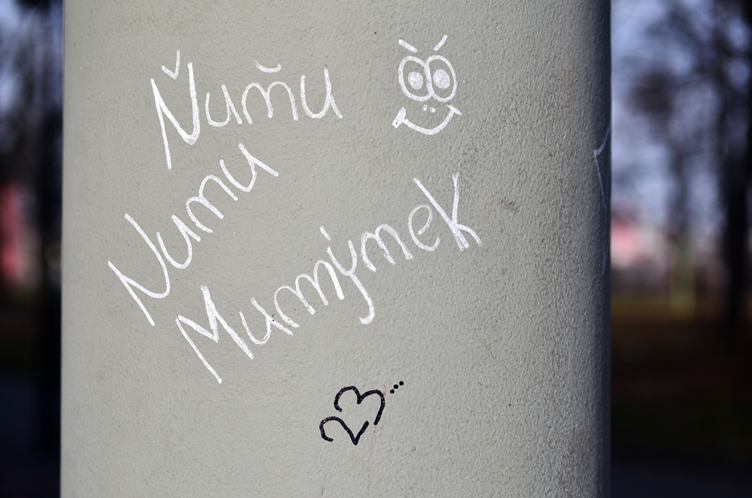 Ňuňu
Nunu
Mumýnek